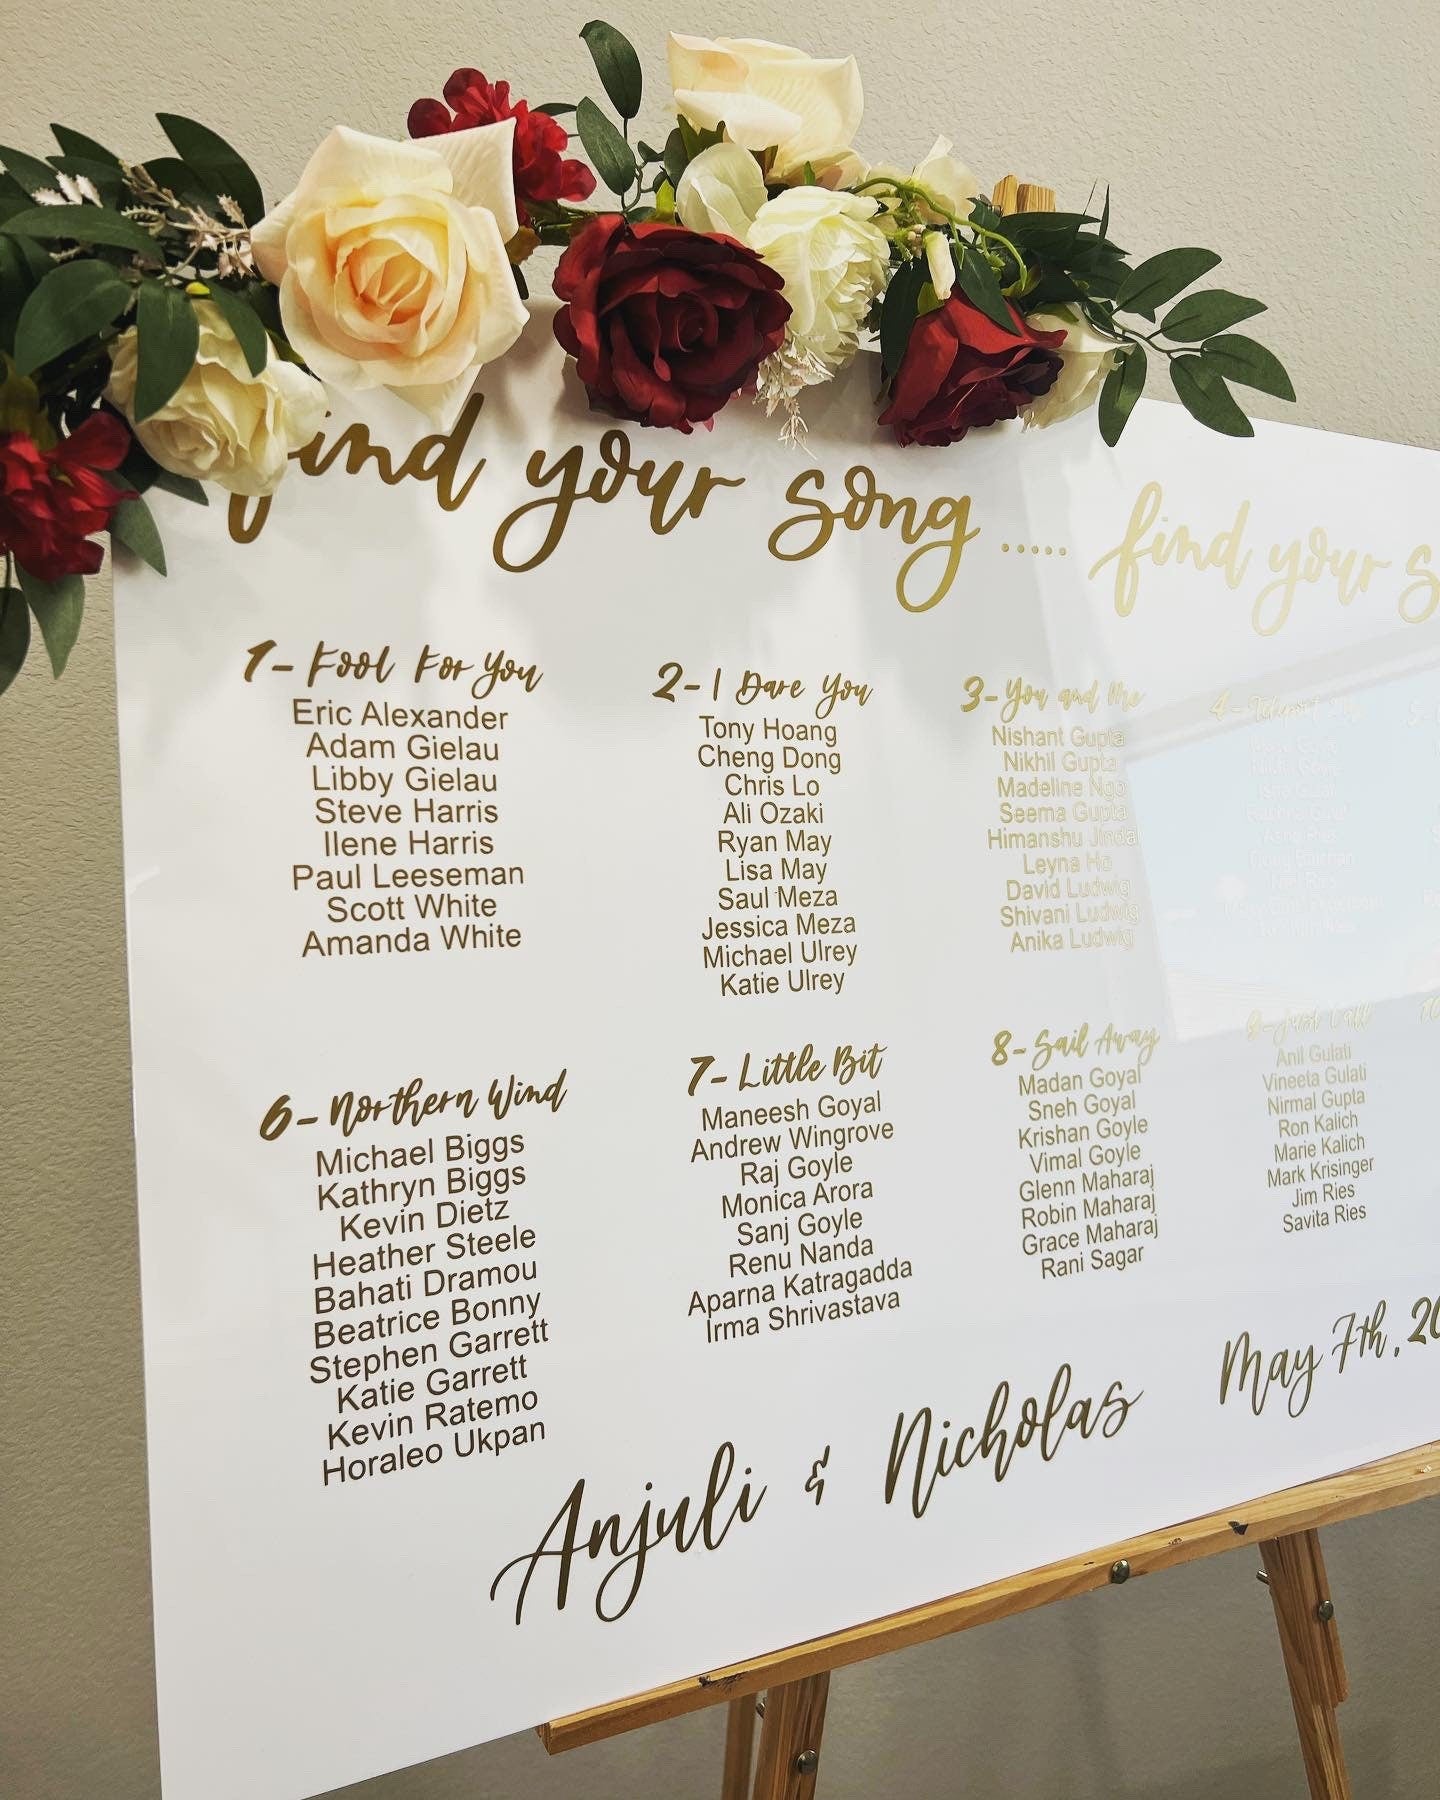 find your song ..... find your
1- Fool For You
Eric Alexander
Adam Gielau
Libby Gielau
Steve Harris
Ilene Harris
Paul Leeseman
Scott White
Amanda White
2- I Dare You
Tony Hoang
Cheng Dong
Chris Lo
Ali Ozaki
Ryan May
Lisa May
Saul Meza
Jessica Meza
Michael Ulrey
Katie Ulrey
3- You and Me
Nishant Gupta
Nikhil Gupta
Madeline Ngo
Seema Gupta
Himanshu Jindal
Leyna Ho
David Ludwig
Shivani Ludwig
Anika Ludwig
4-
6- Northern Wind
Michael Biggs
Kathryn Biggs
Kevin Dietz
Heather Steele
Bahati Dramou
Beatrice Bonny
Stephen Garrett
Katie Garrett
Kevin Ratemo
Horaleo Ukpan
7- Little Bit
Maneesh Goyal
Andrew Wingrove
Raj Goyle
Monica Arora
Sanj Goyle
Renu Nanda
Aparna Katragadda
Irma Shrivastava
8- Sail Away
Madan Goyal
Sneh Goyal
Krishan Goyle
Vimal Goyle
Glenn Maharaj
Robin Maharaj
Grace Maharaj
Rani Sagar
9- Just Call
Anil Gulati
Vineeta Gulati
Nirmal Gupta
Ron Kalich
Marie Kalich
Mark Krisinger
Jim Ries
Savita Ries
Anjuli & Nicholas
May 7th, 20